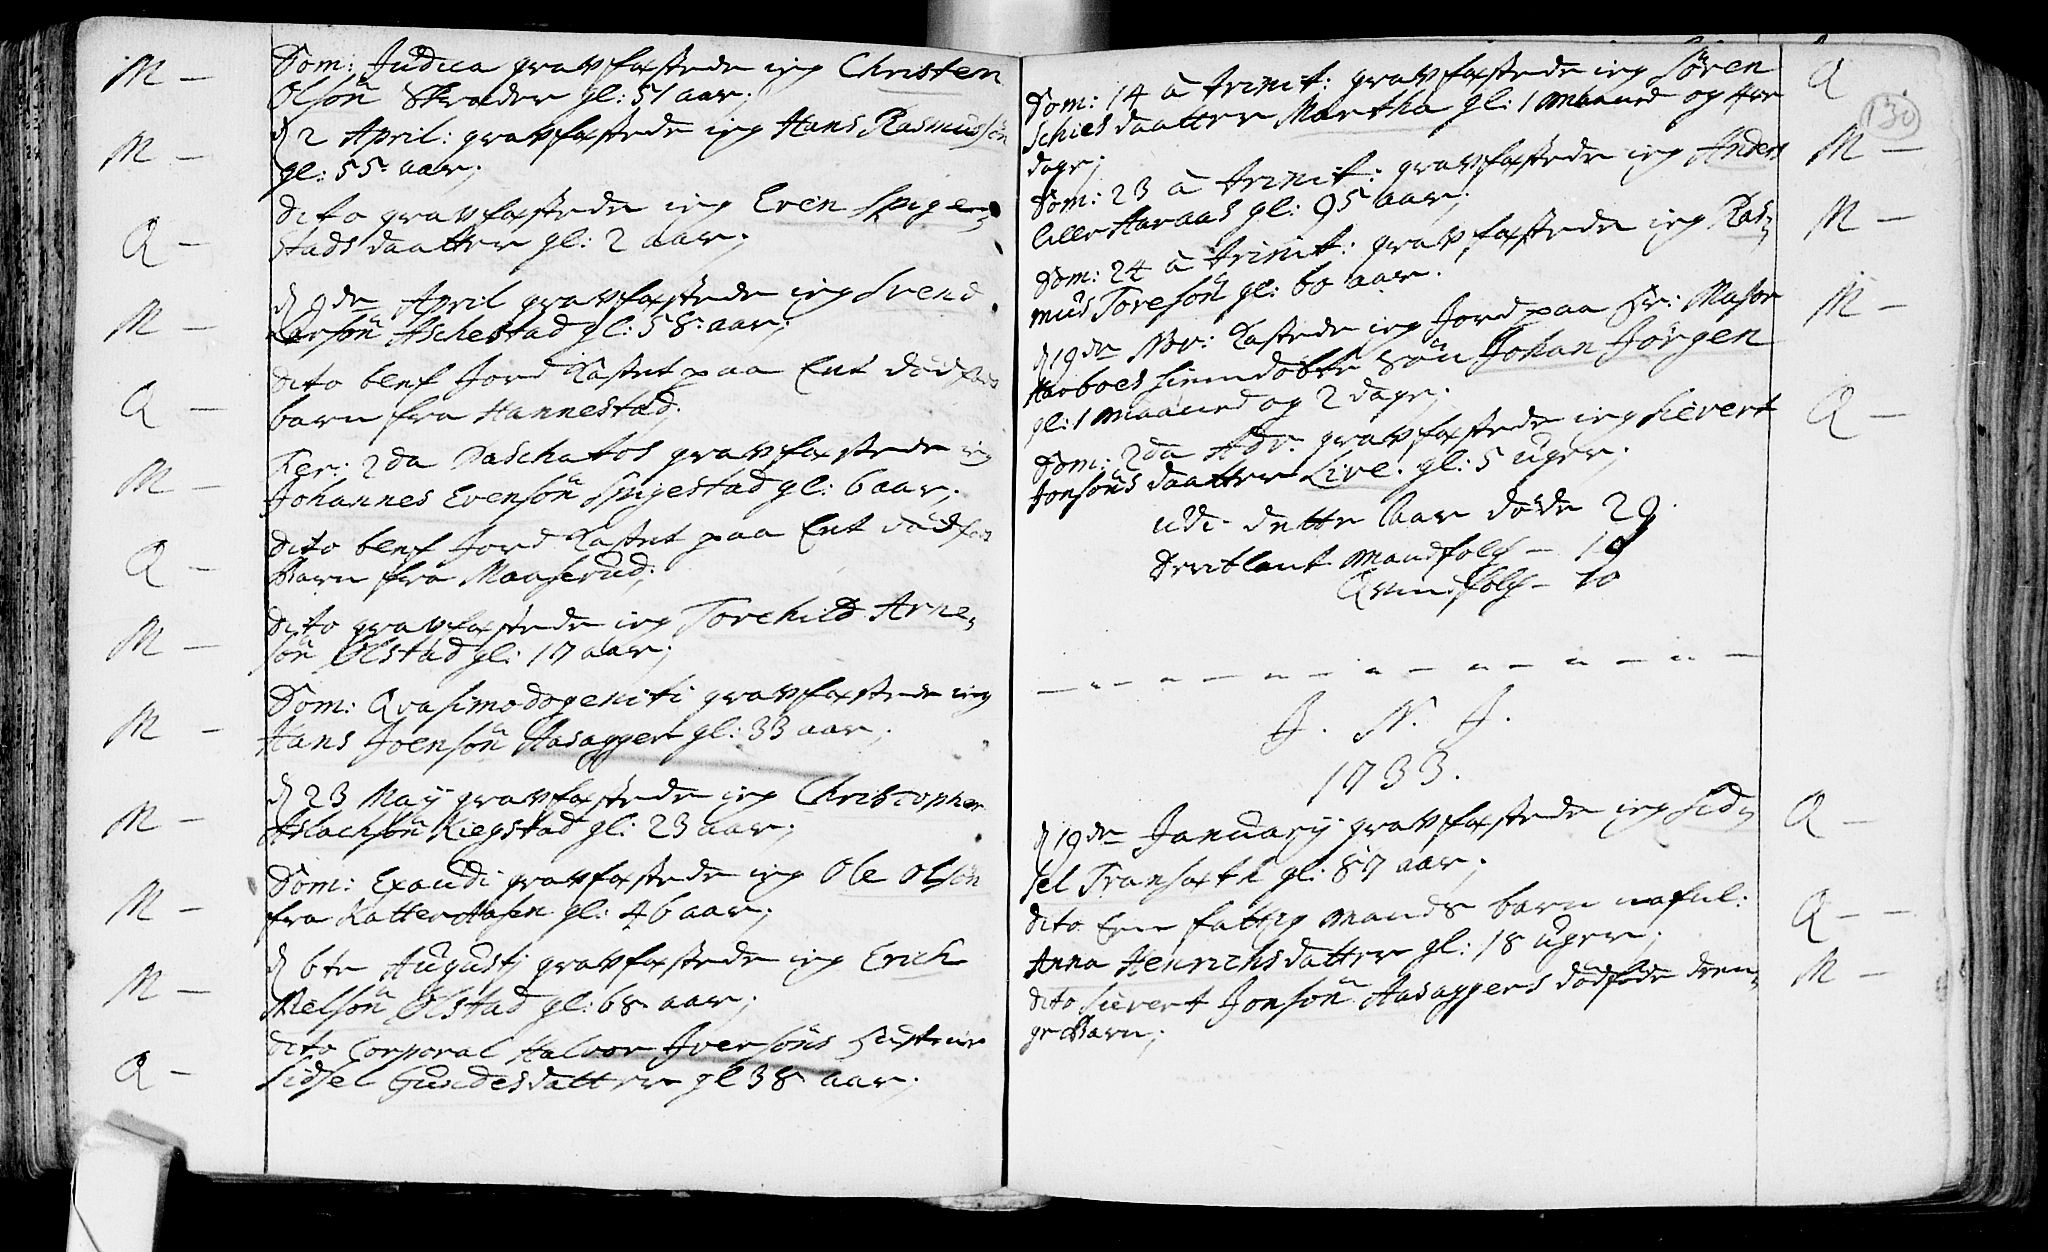 M – Dom: Judica gravfæstede ieg Christen
Olsön Skræder gl: 51 aar;
M – d 2 April: gravfæstede ieg Hans Rasmussön
gl: 55 aar;
Q – dito gravfæstede ieg Even Spige-
stads daatter gl: 2 aar;
M – d 9de April gravfæstede ieg Svend
Larsön Aschestad gl: 58 aar;
Q – dito blef Jord Kastet paa Eet dödfös
barn fra Hannestad;
M – Fer: 2da Paschatos gravfæstede ieg
Johannes Evensön Spigestad gl: 6 aar;
Q – dito blef Jord Kastet paa Eet dödfös
Barn fra Maaserud;
M – dito gravfæstede ieg Torchild Arne-
sön Ölstad gl: 17 aar;
M – Dom: Qvasimodogeniti gravfæstede ieg
Hans Joensön Aasagger gl: 33 aar;
M – d 23 Maÿ gravfæstede ieg Christopher
Aslachsön Kiegstad gl: 23 aar;
M – Dom: Exaudi gravfæstede ieg Ole Olsön
fra Katterhusen gl: 46 aar;
M – d 6te Augustj gravfæstede ieg Erich
Nielsön Ölstad gl: 68 aar;
Q – dito Corporal Halvor Iversöns Hustrue
Sidsel Gundesdatter gl 38 aar;
130
Dom: 14 à Trinit: gravfæstede ieg Sören Q
Schies daatter Martha gl: 1 Maaned og
dage;
Dom: 23 à Trinit: gravfæstede ieg Anders M –
lille Haraas gl: 95 aar;
Dom: 24 à Trinit: gravfæstede ieg Ras- M –
mus Toresön gl: 60 aar.
d 19de Nov: Kastede ieg Jord paa Hr: Major M –
Harboes hiemdöbte Sön Johan Jörgen
gl: 1 Maaned og 2 dage;
Dom: 2da Adv: gravfæstede ieg Sievert Q –
Jonsöns daatter Live. gl: 5 Uger;
udi dette Aar döde 29.
Deriblant Mandfolch – 19
Qvindfolch – 10
J. N. J.
1733.
d 19de Januarÿ gravfæstede ieg Sid- Q –
sel Transæth gl: 87 aar;
dito Een fattig Mands barn nafnl: Q –
Anna Henrichsdatter gl: 18 Uger;
dito Sievert Jonsön Aasaggers dödföde dren- M –
ge Barn;